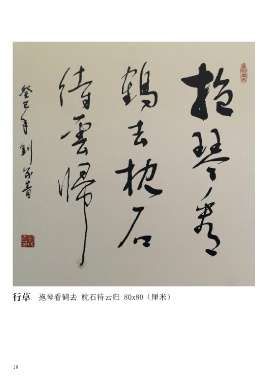 抱琴看
鹤去枕石
待雲歸
癸巳年劉
行草 抱琴看鹤去 枕石待云归 80x80（厘米）
18